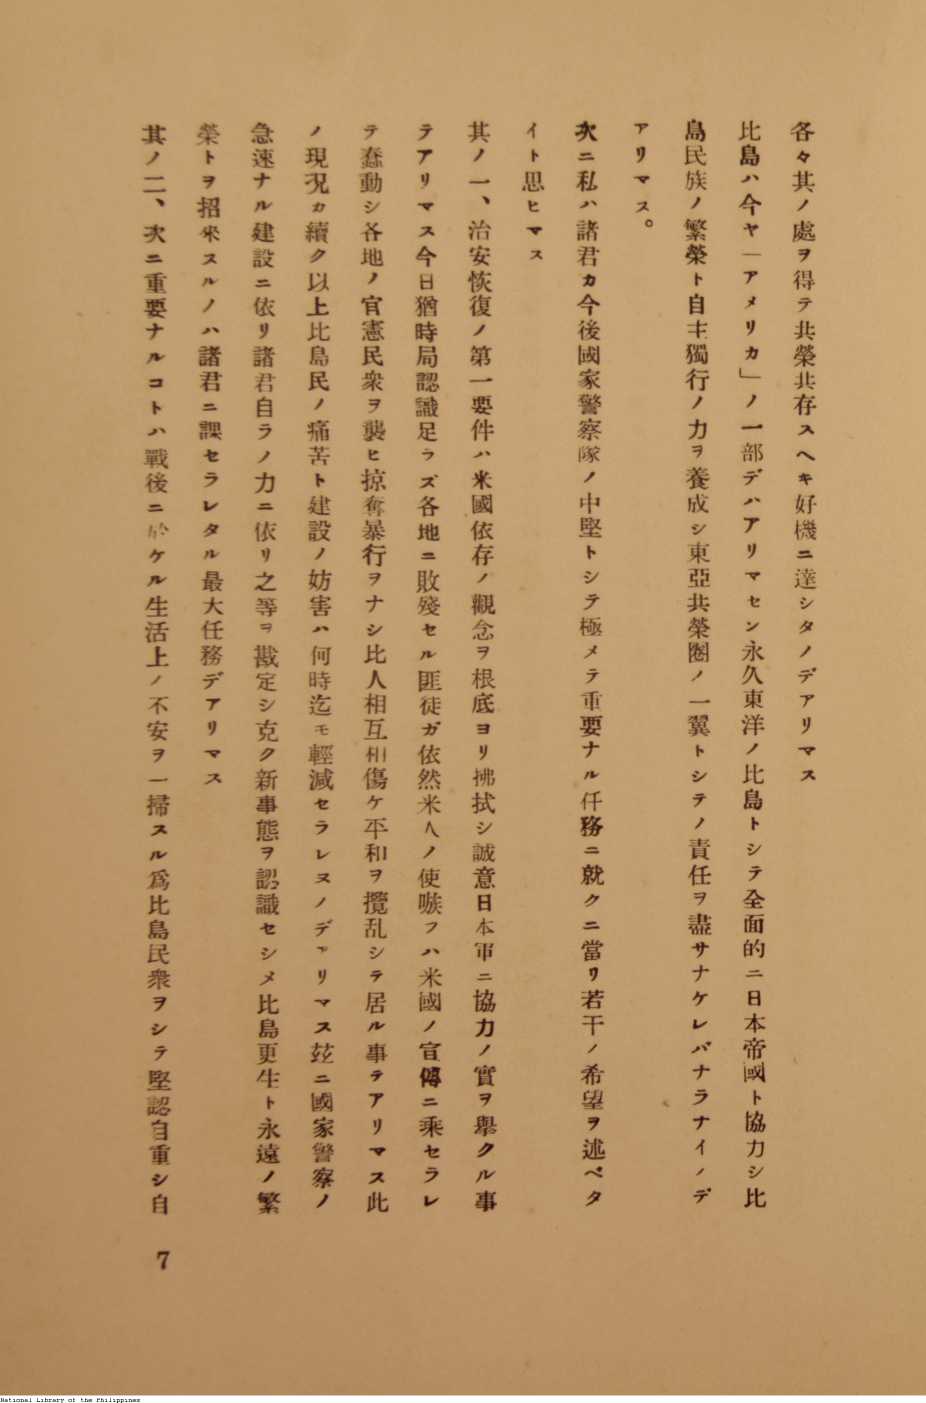 各々其ノ處ヲ得テ共榮共存スヘキ好機ニ達シタノデアリマス
比島ハ今ヤ「アメリカ」ノ一部デハアリマセン永久東洋ノ比島トシテ全面的ニ日本帝國ト協力シ比
島民族ノ繁榮ト自主獨行ノ力ヲ養成シ東亞共榮圏ノ一翼トシテノ責任ヲ盡サナケレバナラナイノデ
アリマス。
次ニ私ハ諸君カ今後國家警察隊ノ中堅トシテ極メテ重要ナル仟務ニ就クニ當リ若干ノ希望ヲ述ベタ
イト思ヒマス
其ノ一、治安恢復ノ第一要件ハ米國依存ノ觀念ヲ根底ヨリ拂拭シ誠意日本軍ニ協力ノ實ヲ擧クル事
テアリマス今日猶時局認識足ラズ各地ニ敗殘セル匪徒ガ依然米人ノ使嗾フハ米國ノ宣傳ニ乘セラレ
テ蠢動シ各地ノ官憲民衆ヲ襲ヒ掠奪暴行ヲナシ比人相互相傷ケ平和ヲ攪乱シテ居ル事テアリマス此
ノ現況カ續ク以上比島民ノ痛苦ト建設ノ妨害ハ何時迄モ輕減セラレヌノデアリマス玆ニ國家警察ノ
急速ナル建設ニ依リ諸君自ラノ力ニ依リ之等ヲ戡定シ克ク新事態ヲ認識セシメ比島更生ト永遠ノ繁
榮トヲ招来スルノハ諸君ニ課セラレタル最大任務デアリマス
其ノ二、次ニ重要ナルコトハ戰後ニ於ケル生活上ノ不安ヲ一掃スル爲比島民衆ヲシテ堅認自重シ自
7
National Library of the Philippines